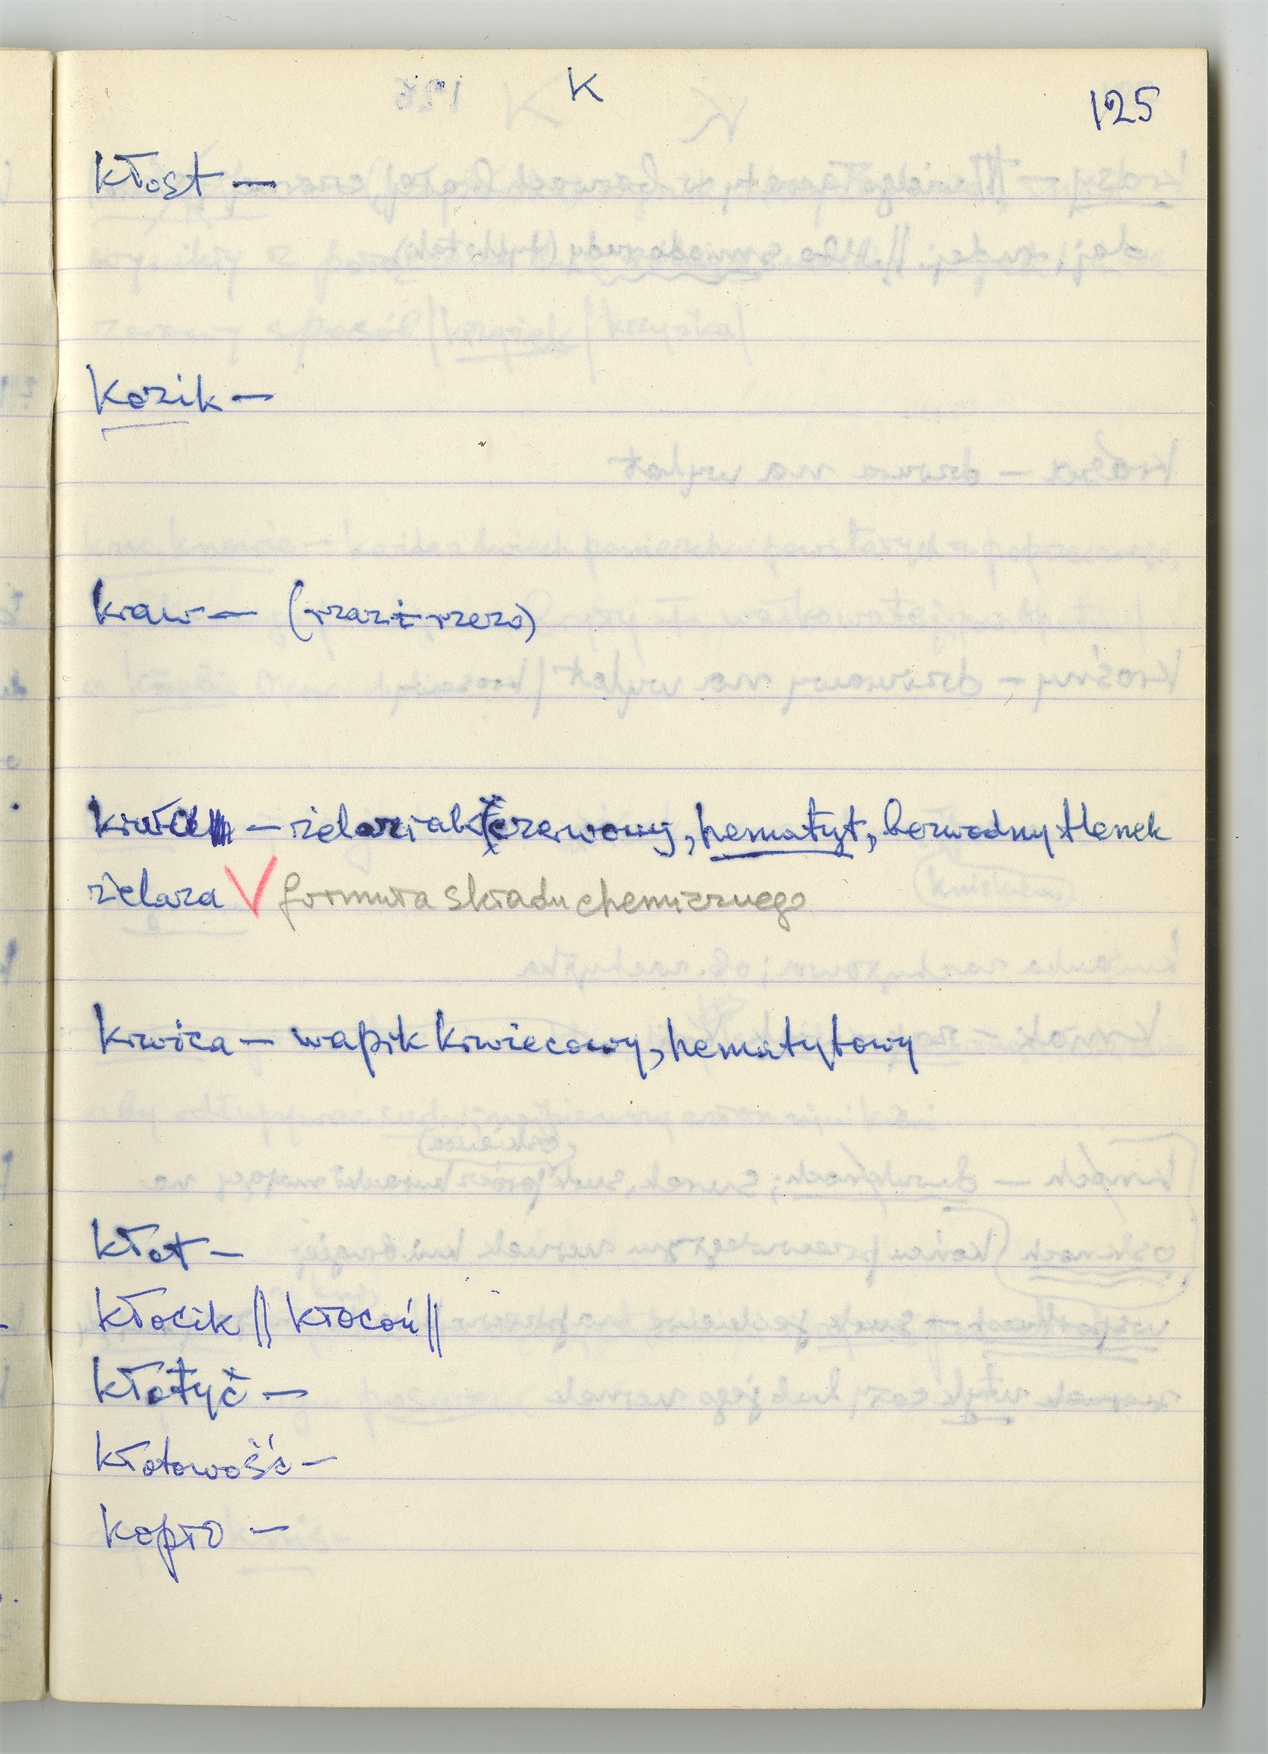 K
125
kłost —
kozik —
kraw — (rzaz i rzezo)
— żelaziak czerwony, hematyt, bezwodny tlenek
żelaza V formuła składu chemicznego
krwica — wapik krwiecowy, hematytowy
kłot —
kłocik || kłocoń ||
kłotyć —
kłotowość —
kopło —